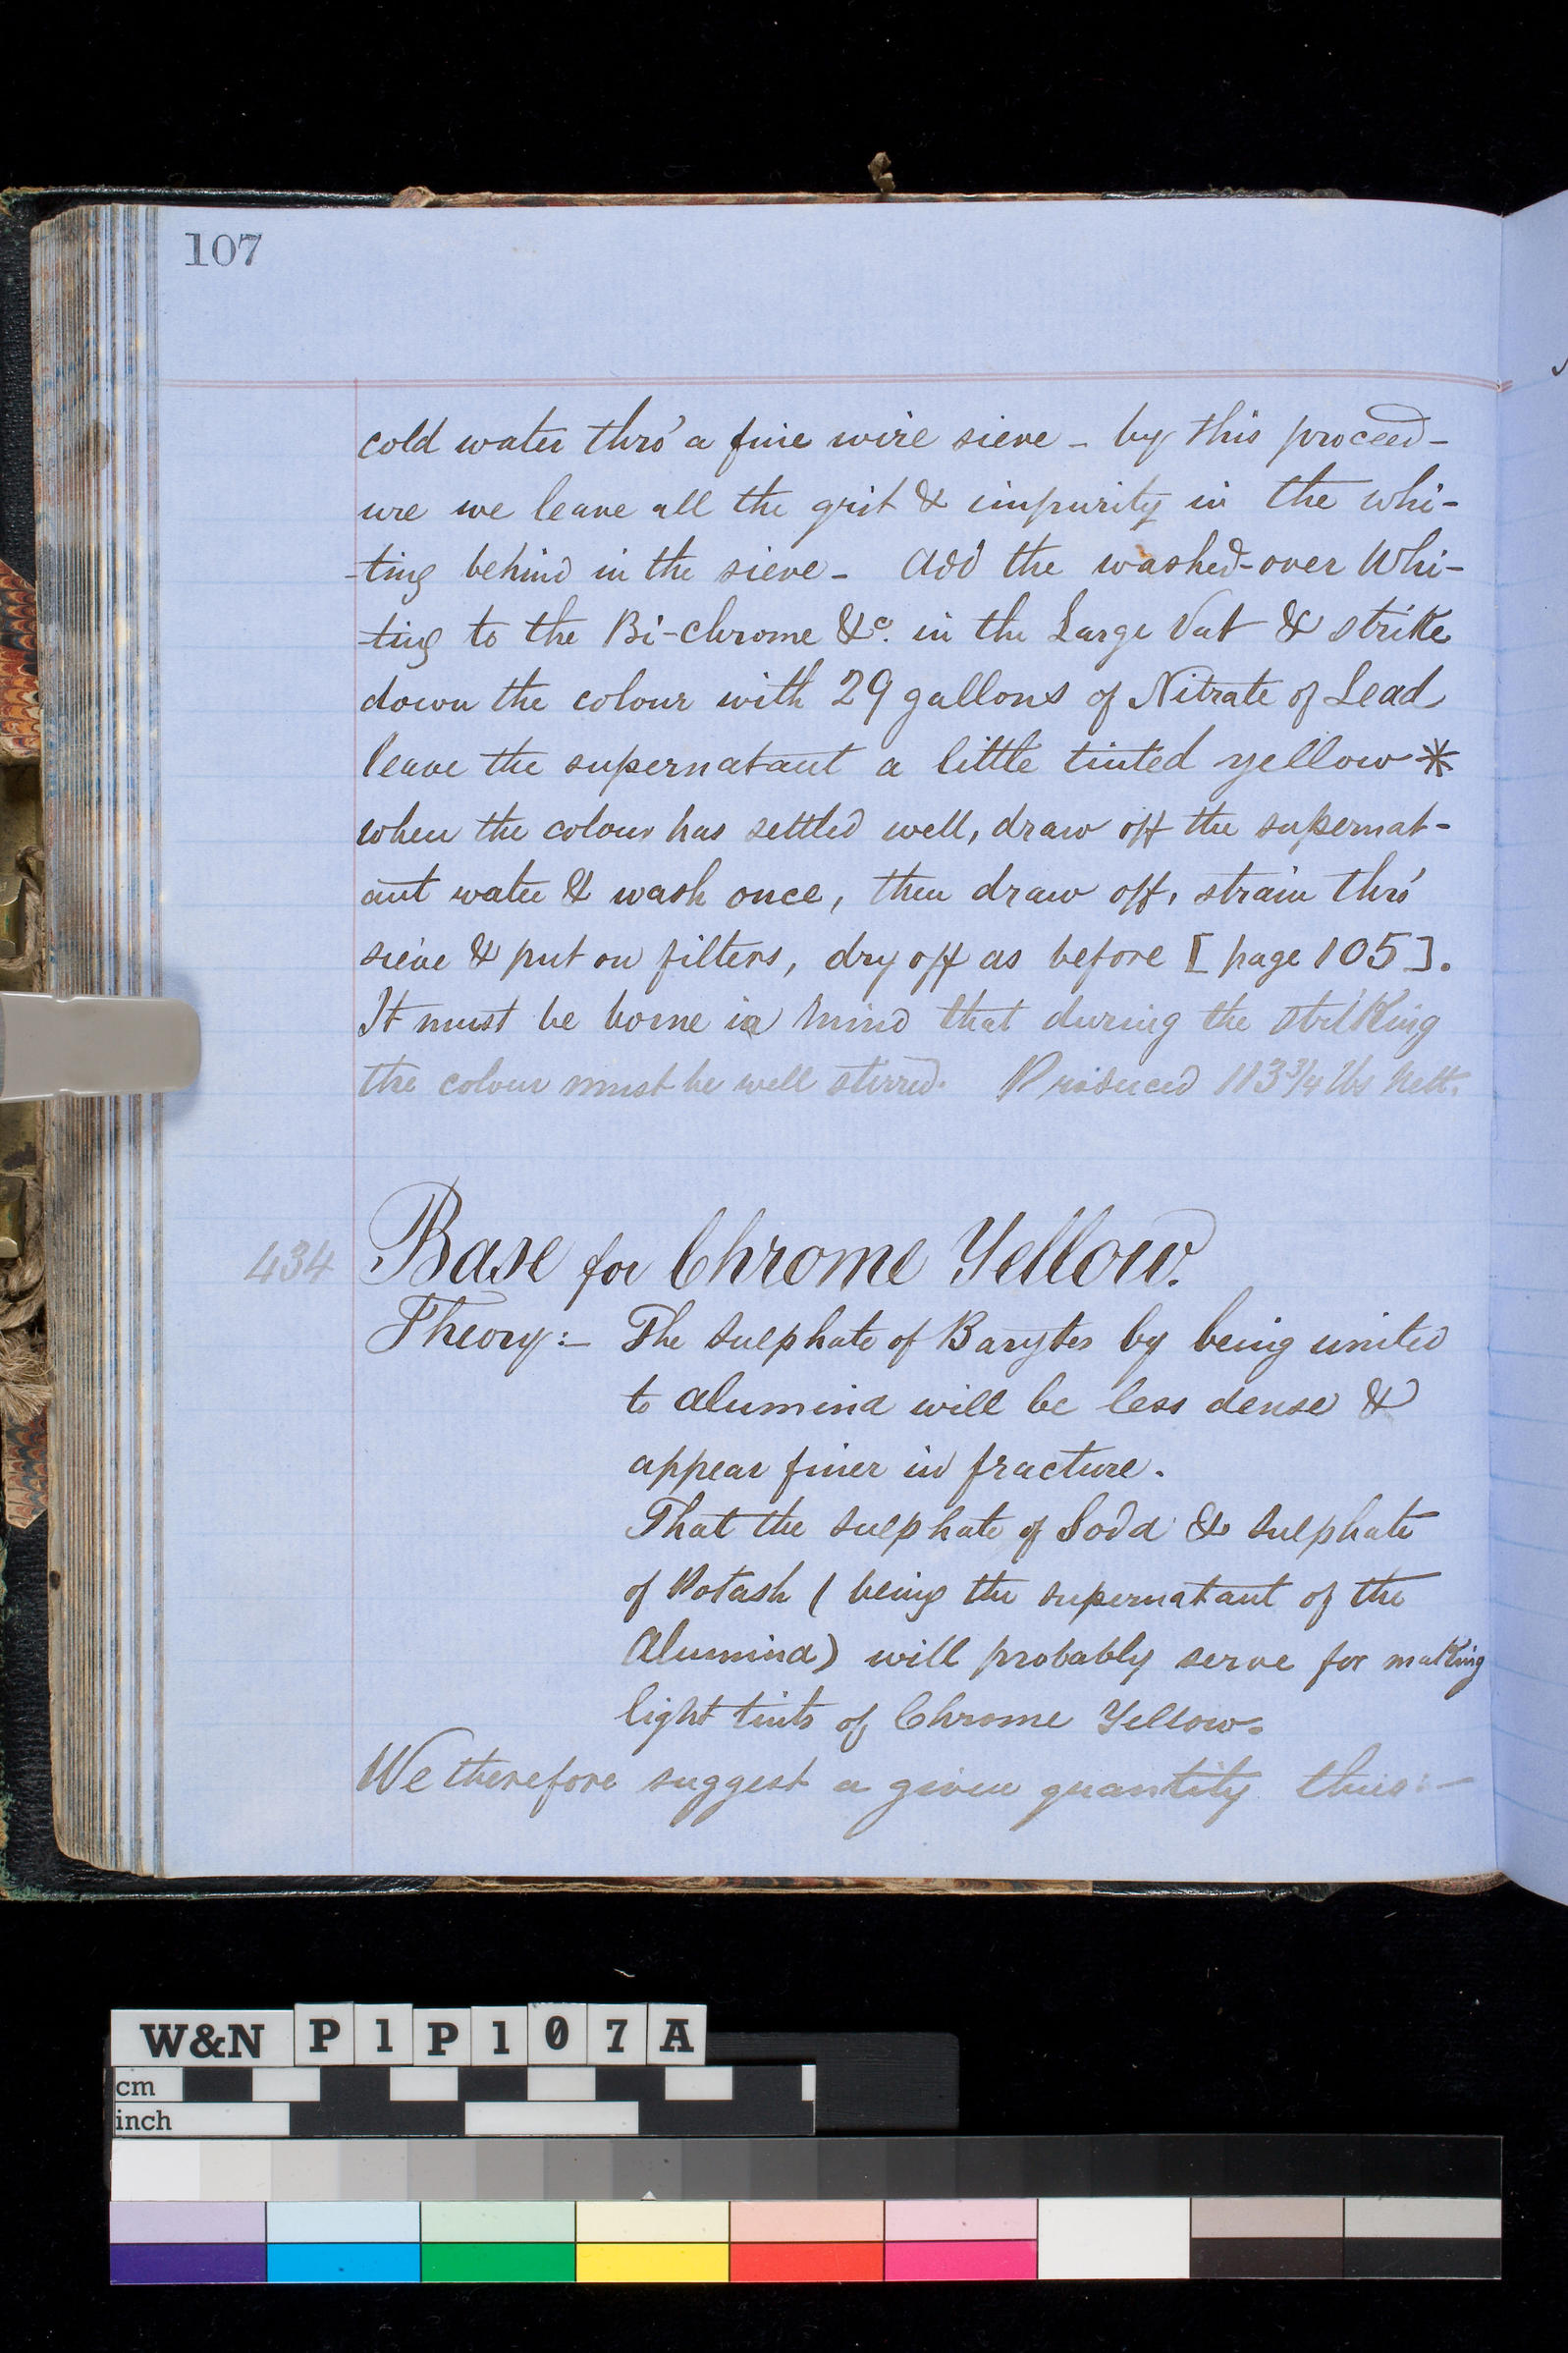 107
cold water thro' a fine wire sieve - by this proceed-
ure we leave all the grit & impurity in the whi-
-ting behind in the sieve - Add the washed-over Whi-
-ting to the Bi-chrome &c. in the Large Vat & strike
down the colour with 29 gallons of Nitrate of Lead
leave the supernatant a little tinted yellow *
when the colour has settled well, draw off the supernat-
ant water & wash once, then draw off, strain thro'
sieve & put on filters, dry off as before [page 105].
It must be borne in mind that during the striking
the colour must be well stirred. Produced 113 3/4 lbs Nett.
434 Base for Chrome Yellow.
Theory:- The Sulphate of Barytes by being united
to Alumina will be less dense &
appear finer in fracture.
That the Sulphate of Soda & Sulphate
of Potash (being the supernatant of the
Alumina) will probably serve for making
light tints of Chrome Yellow.
We therefore suggest a given quantity thus:-
W&N P1P107A
cm
inch